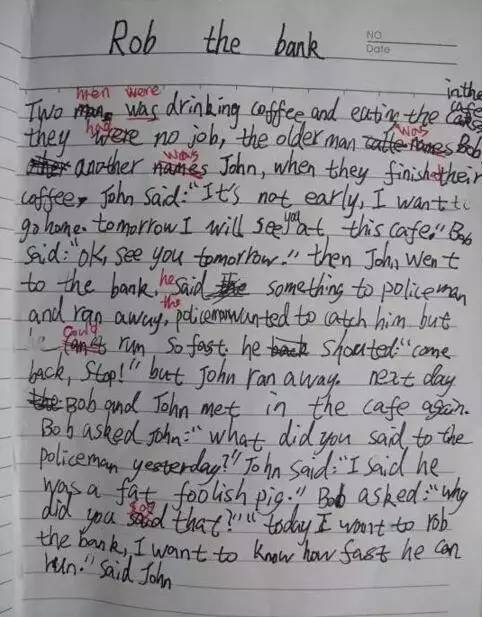 NO
Date
Rob the bank
in the cafe
men were
Two man was drinking coffee and eating the cakes
had was
they were no job, the older man names Bob
was
another names John, when they finished their
coffee, John said: "It's not early, I want to
you
go home. tomorrow I will see at this cafe." Bob
said: "OK, see you tomorrow." then John went
he
to the bank, said something to policeman
the
and ran away, policeman wanted to catch him but
could
he can't run so fast. he back shouted: "come
back, Stop!" but John ran away. next day
the Bob and John met in the cafe again.
Bob asked John: "what did you said to the
policeman yesterday?" John said: "I said he
was a fat foolish pig." Bob asked: "why
say
did you said that?" "today I want to rob
the bank, I want to know how fast he can
run." said John